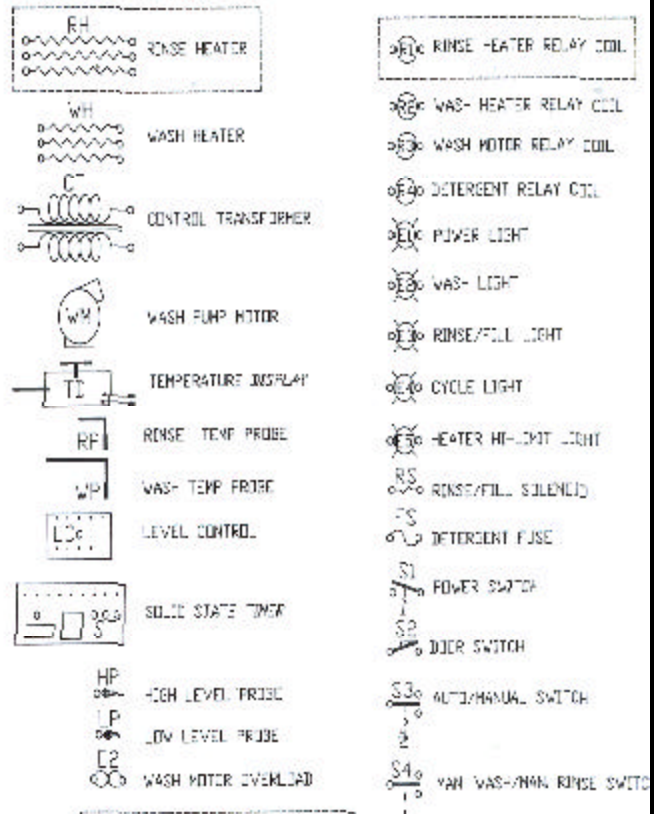 RH
RINSE HEATER
WH
WASH HEATER
CT
CONTROL TRANSFORMER
WM
WASH PUMP MOTOR
TD
TEMPERATURE DISPLAY
RP
RINSE TEMP PROBE
WP
WASH TEMP PROBE
LC
LEVEL CONTROL
SOLID STATE TIMER
HP
HIGH LEVEL PROBE
LP
LOW LEVEL PROBE
WASH MOTOR OVERLOAD
R1 RINSE HEATER RELAY COIL
R2 WASH HEATER RELAY COIL
R3 WASH MOTOR RELAY COIL
R4 DETERGENT RELAY COIL
E1 POWER LIGHT
E2 WASH LIGHT
E3 RINSE/FILL LIGHT
E4 CYCLE LIGHT
E5 HEATER HI-LIMIT LIGHT
RS
RINSE/FILL SOLENOID
FS
DETERGENT FUSE
S1
POWER SWITCH
S2
DOOR SWITCH
S3
AUTO/MANUAL SWITCH
S4
MAN WASH/MAN RINSE SWITC